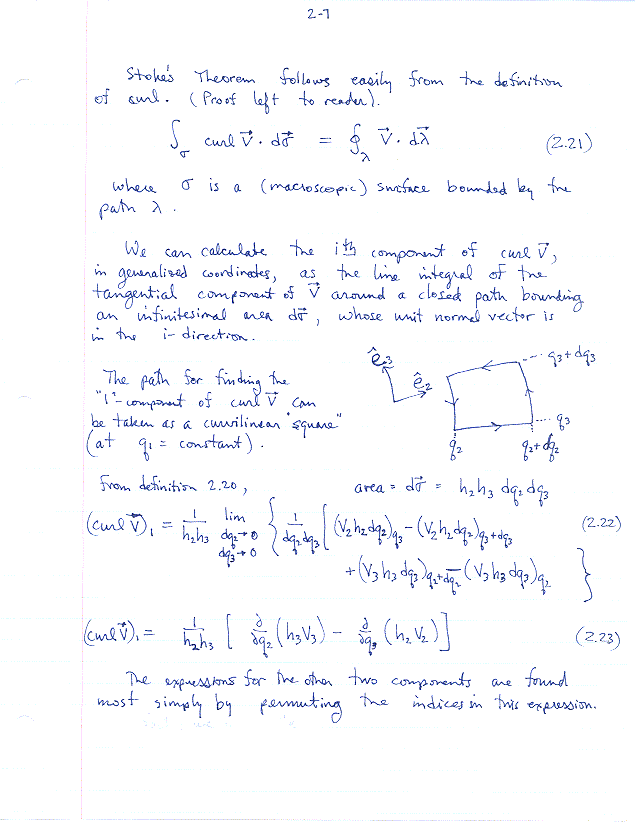 2-7
Stoke's Theorem follows easily from the definition
of curl. (Proof left to reader).
∫_σ curl V⃗ · dσ⃗ = ∮_λ V⃗ · dλ⃗ (2.21)
where σ is a (macroscopic) surface bounded by the
path λ.
We can calculate the ith component of curl V⃗,
in generalized coordinates, as the line integral of the
tangential component of V⃗ around a closed path bounding
an infinitesimal area dσ⃗, whose unit normal vector is
in the i-direction.
ê₃ q₃+dq₃
The path for finding the
ê₂
"1"-component of curl V⃗ can
be taken as a curvilinear "square" q₃
(at q₁ = constant). q₂ q₂+dq₂
From definition 2.20, area = dσ⃗ = h₂h₃ dq₂dq₃
(curl V⃗)₁ = 1/h₂h₃ lim dq₂→0 dq₃→0 { 1/dq₂dq₃ [ (V₂h₂dq₂)q₃ − (V₂h₂dq₂)q₃+dq₃ (2.22)
+ (V₃h₃dq₃)q₂+dq₂ − (V₃h₃dq₃)q₂ }
(curl V⃗)₁ = 1/h₂h₃ [ ∂/∂q₂ (h₃V₃) − ∂/∂q₃ (h₂V₂) ] (2.23)
The expressions for the other two components are found
most simply by permuting the indices in this expression.